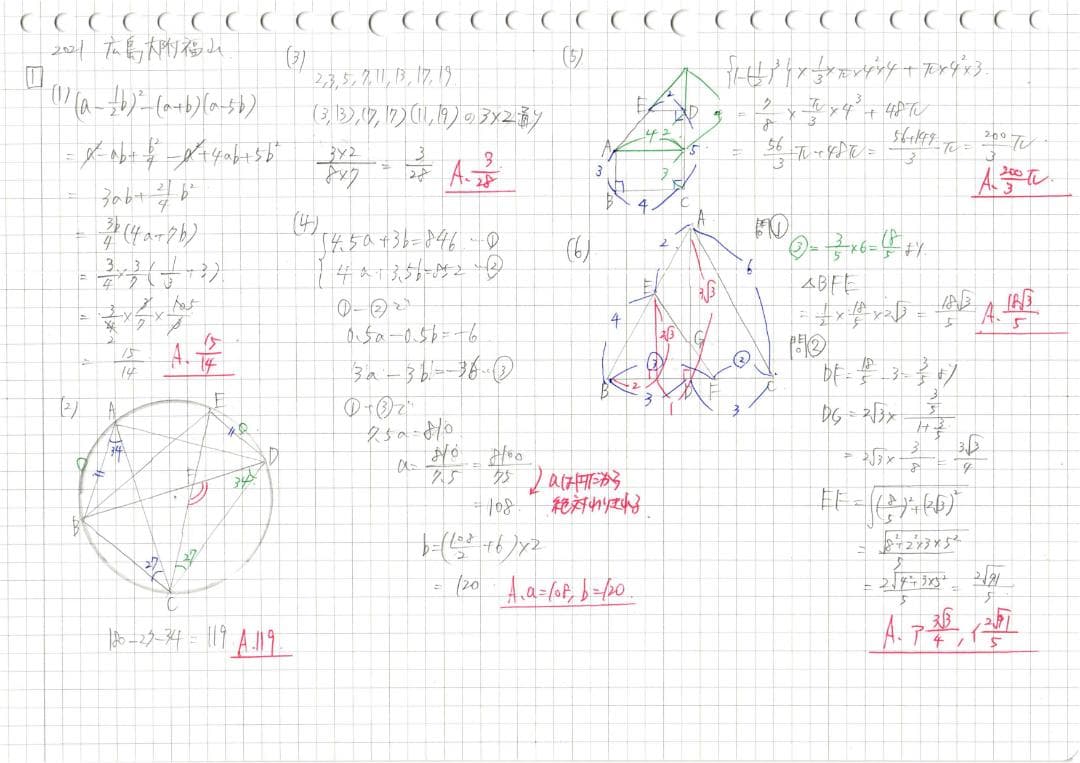 2021 広島大附福山
1
(1) (a-1/2b)²-(a+b)(a-5b)
= a²-ab+b²/4-a²+4ab+5b²
= 3ab+21/4b²
= 3b/4(4a+7b)
= 3/4×3/7(1/3+3)
= 15/14
A. 15/14
(2)
A
E
D
B
F
C
34
34
27
27
180-27-34=119
A.119.
(3)
2,3,5,7,11,13,17,19
(3,13),(7,17)(11,19)の3×2通り
3×2/8×7=3/28
A. 3/28
(4)
4.5a+3b=846 …①
4a+3.5b=852 …②
①-②で
0.5a-0.5b=-6
3a-3b=-36…③
①+③で
7.5a=810
a=810/7.5=8100/75
=108
b=(108/2+6)×2
=120
A. a=108, b=120.
(5)
E
2
D
A
4
2
5
3
3
B
4
C
{1-(1/2)³}×1/3×π×4²×4+π×4²×3.
= 7/8×π/3×4³+48π
= 56/3π+48π=56+144/3π=200/3π
A. 200/3π
(6)
A
2
6
E
3√3
4
2√3
G
③
②
B
2
3
D
F
C
1
3
問①
③=3/5×6=18/5より
△BFE
=1/2×18/5×2√3=18√3/5
A. 18√3/5
問②
DF=18/5-3=3/5より
DG=2√3×3/5/1+3/5
=2√3×3/8=3√3/4
EF=√(8/5)²+(2√3)²
=√8²+2²×3×5²/5
=2√4²+3×5²/5=2√91/5
A. ア 3√3/4, イ 2√91/5